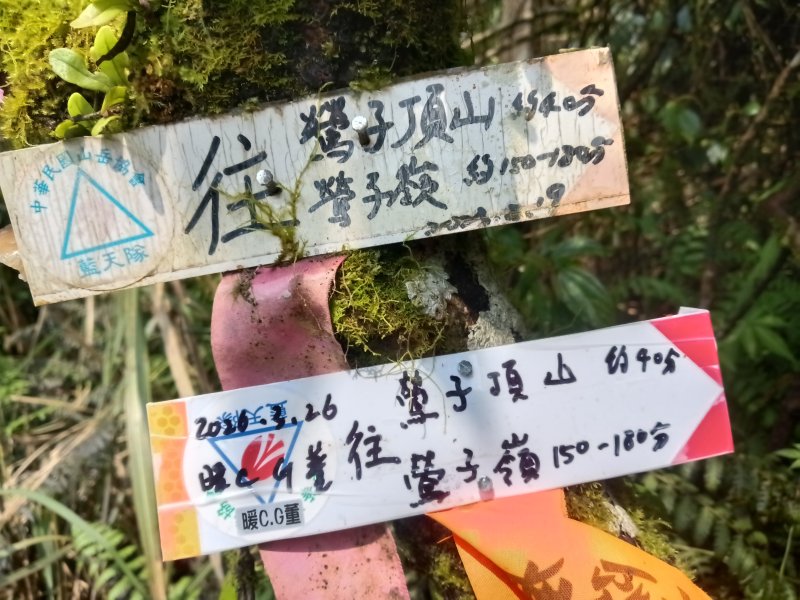 中華民國山岳協會
藍天隊
往
鶯子頂山 約40分
鶯子嶺 約150-180分
2026.3.26
藍天隊
暖C.G董
往
鶯子頂山 約40分
鶯子嶺 150-180分
暖C.G董